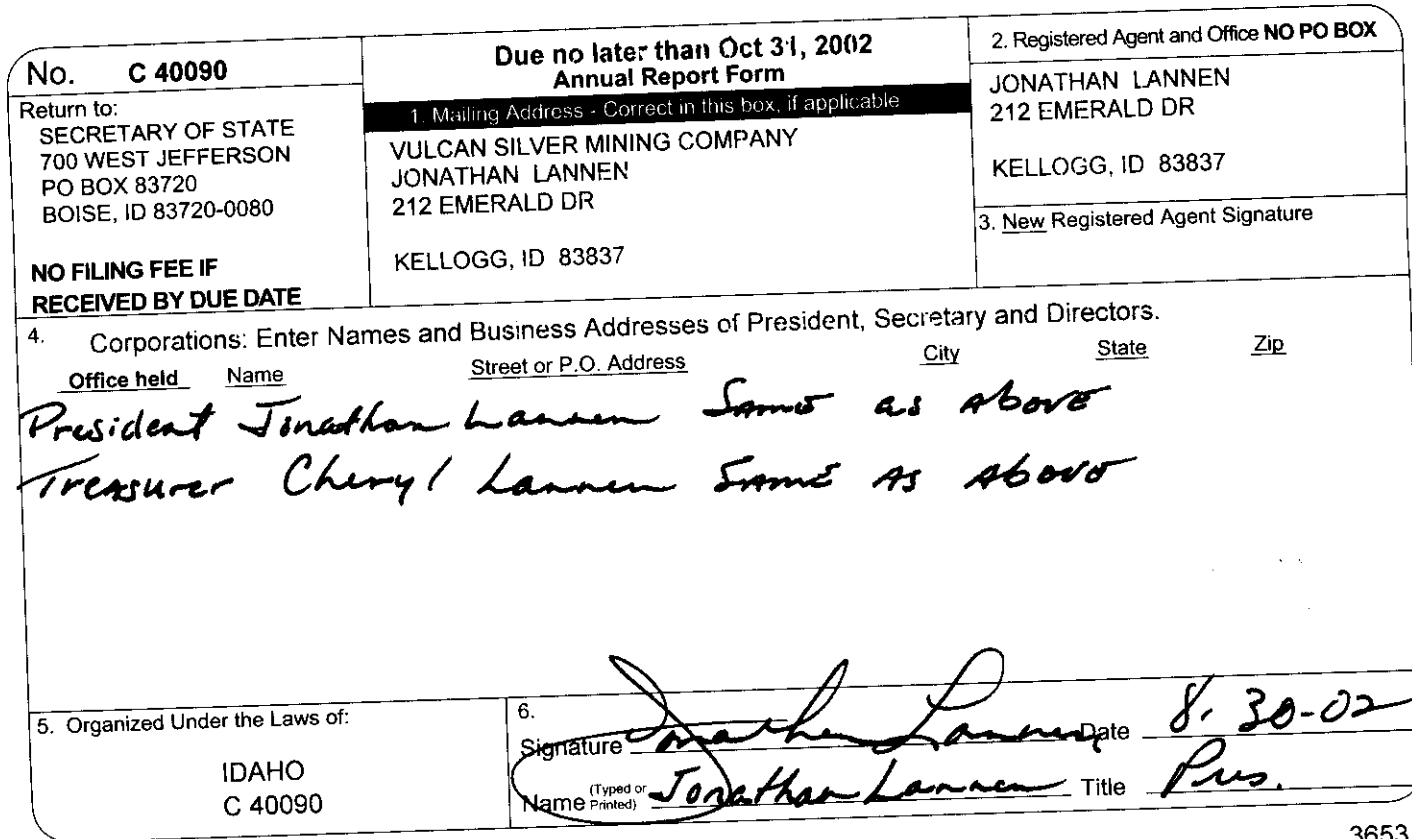 No. C 40090
Return to:
SECRETARY OF STATE
700 WEST JEFFERSON
PO BOX 83720
BOISE, ID 83720-0080
NO FILING FEE IF
RECEIVED BY DUE DATE
Due no later than Oct 31, 2002
Annual Report Form
1. Mailing Address - Correct in this box, if applicable
VULCAN SILVER MINING COMPANY
JONATHAN LANNEN
212 EMERALD DR
KELLOGG, ID 83837
2. Registered Agent and Office NO PO BOX
JONATHAN LANNEN
212 EMERALD DR
KELLOGG, ID 83837
3. New Registered Agent Signature
4. Corporations: Enter Names and Business Addresses of President, Secretary and Directors.
Office held Name Street or P.O. Address City State Zip
President Jonathan Lannen Same as Above
Treasurer Cheryl Lannen Same As Above
5. Organized Under the Laws of:
IDAHO
C 40090
6.
Signature Jonathan Lannen Date 8-30-02
Name (Typed or Printed) Jonathan Lannen Title Pres.
3653